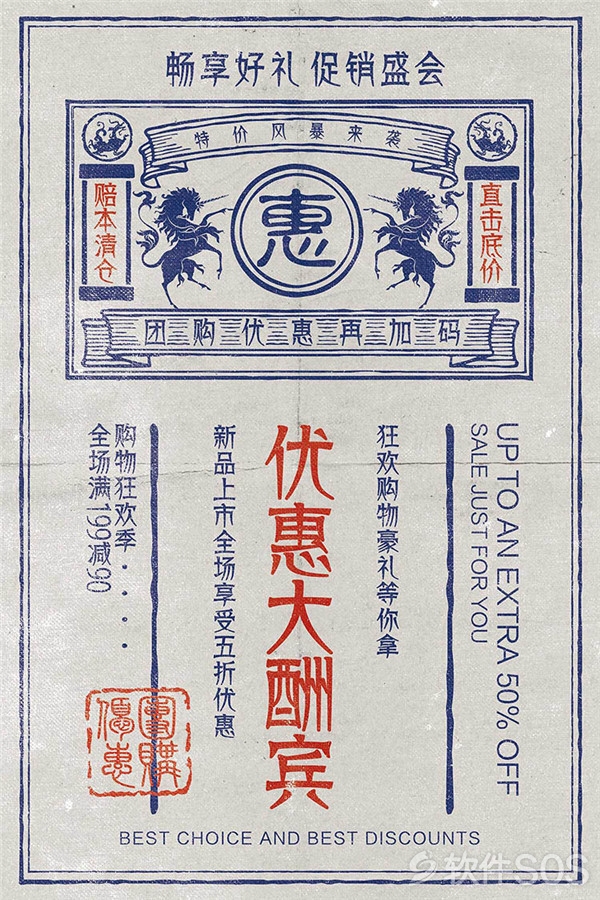 畅享好礼 促销盛会
特价风暴来袭
赔本清仓
惠
直击底价
团购优惠再加码
UP TO AN EXTRA 50% OFF
SALE JUST FOR YOU
狂欢购物豪礼等你拿
优惠大酬宾
新品上市全场享受五折优惠
购物狂欢季····
全场满199减90
團購
優惠
BEST CHOICE AND BEST DISCOUNTS
软件SOS